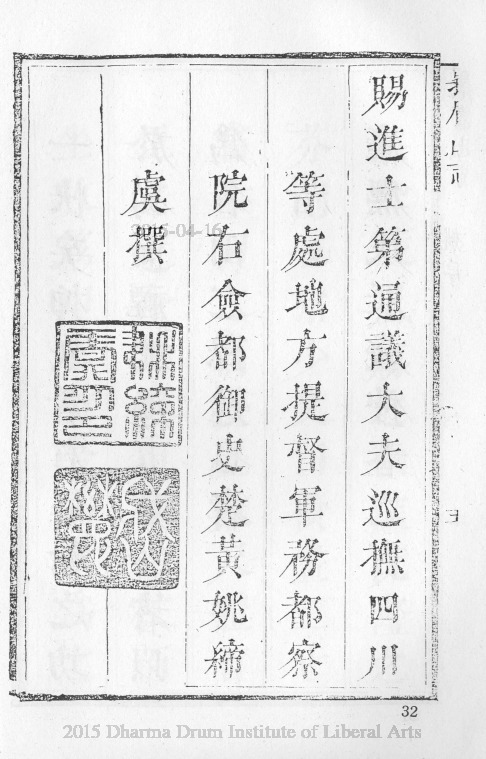 賜進士第通議大夫巡撫四川
等處地方提督軍務都察
院右僉都御史楚黃姚締
虞撰
32
2015 Dharma Drum Institute of Liberal Arts